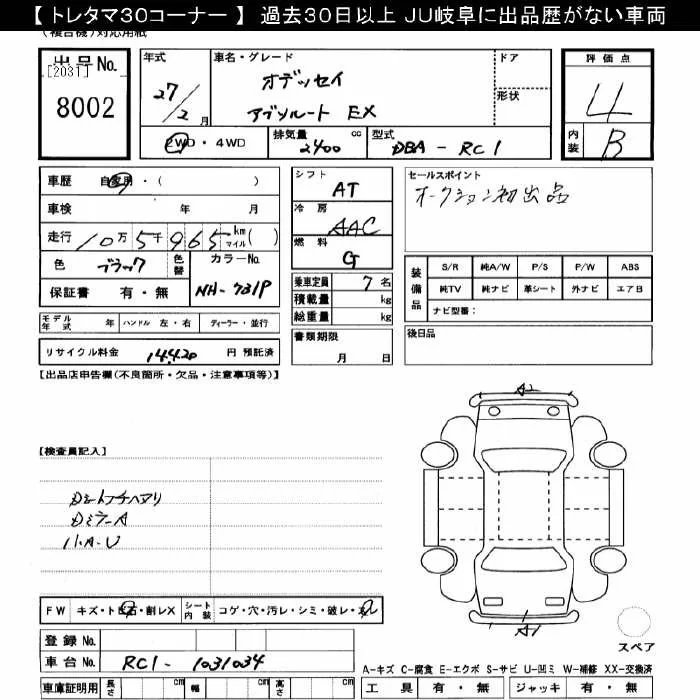 【トレタマ30コーナー】過去30日以上 JU岐阜に出品歴がない車両
(複合機)対応用紙
出品No.
[2031]
8002
年式
27/2月
車名・グレード
オデッセイ
アブソルート EX
ドア
形状
評価点
4
内装 B
2WD・4WD
排気量 2400 cc
型式 DBA-RC1
車歴 自家用・( )
車検 年 月
走行 10万5千965 km マイル( )
色 ブラック 色替
カラーNo. NH-731P
保証書 有・無
シフト AT
冷房 AAC
燃料 G
乗車定員 7名
積載量 kg
総重量 kg
書類期限
月 日
セールスポイント
オークション初出品
装備品
S/R 純A/W P/S P/W ABS
純TV 純ナビ 革シート 外ナビ エアB
ナビ型番:
後日品
モデル年式 年 ハンドル 左・右 ディーラー・並行
リサイクル料金 14420 円 預託済
【出品店申告欄(不良箇所・欠品・注意事項等)】
【検査員記入】
DミラーA
小A.U
A2
A1
FW キズ・トビ石・割レX
シート内装 コゲ・穴・汚レ・シミ・破レ・スレ
登録No.
車台No. RC1-1031034
車庫証明用 長さ cm 幅 cm 高さ cm
スペア
A-キズ C-腐食 E-エクボ S-サビ U-凹ミ W-補修 XX-交換済
工具 有・無 ジャッキ 有・無